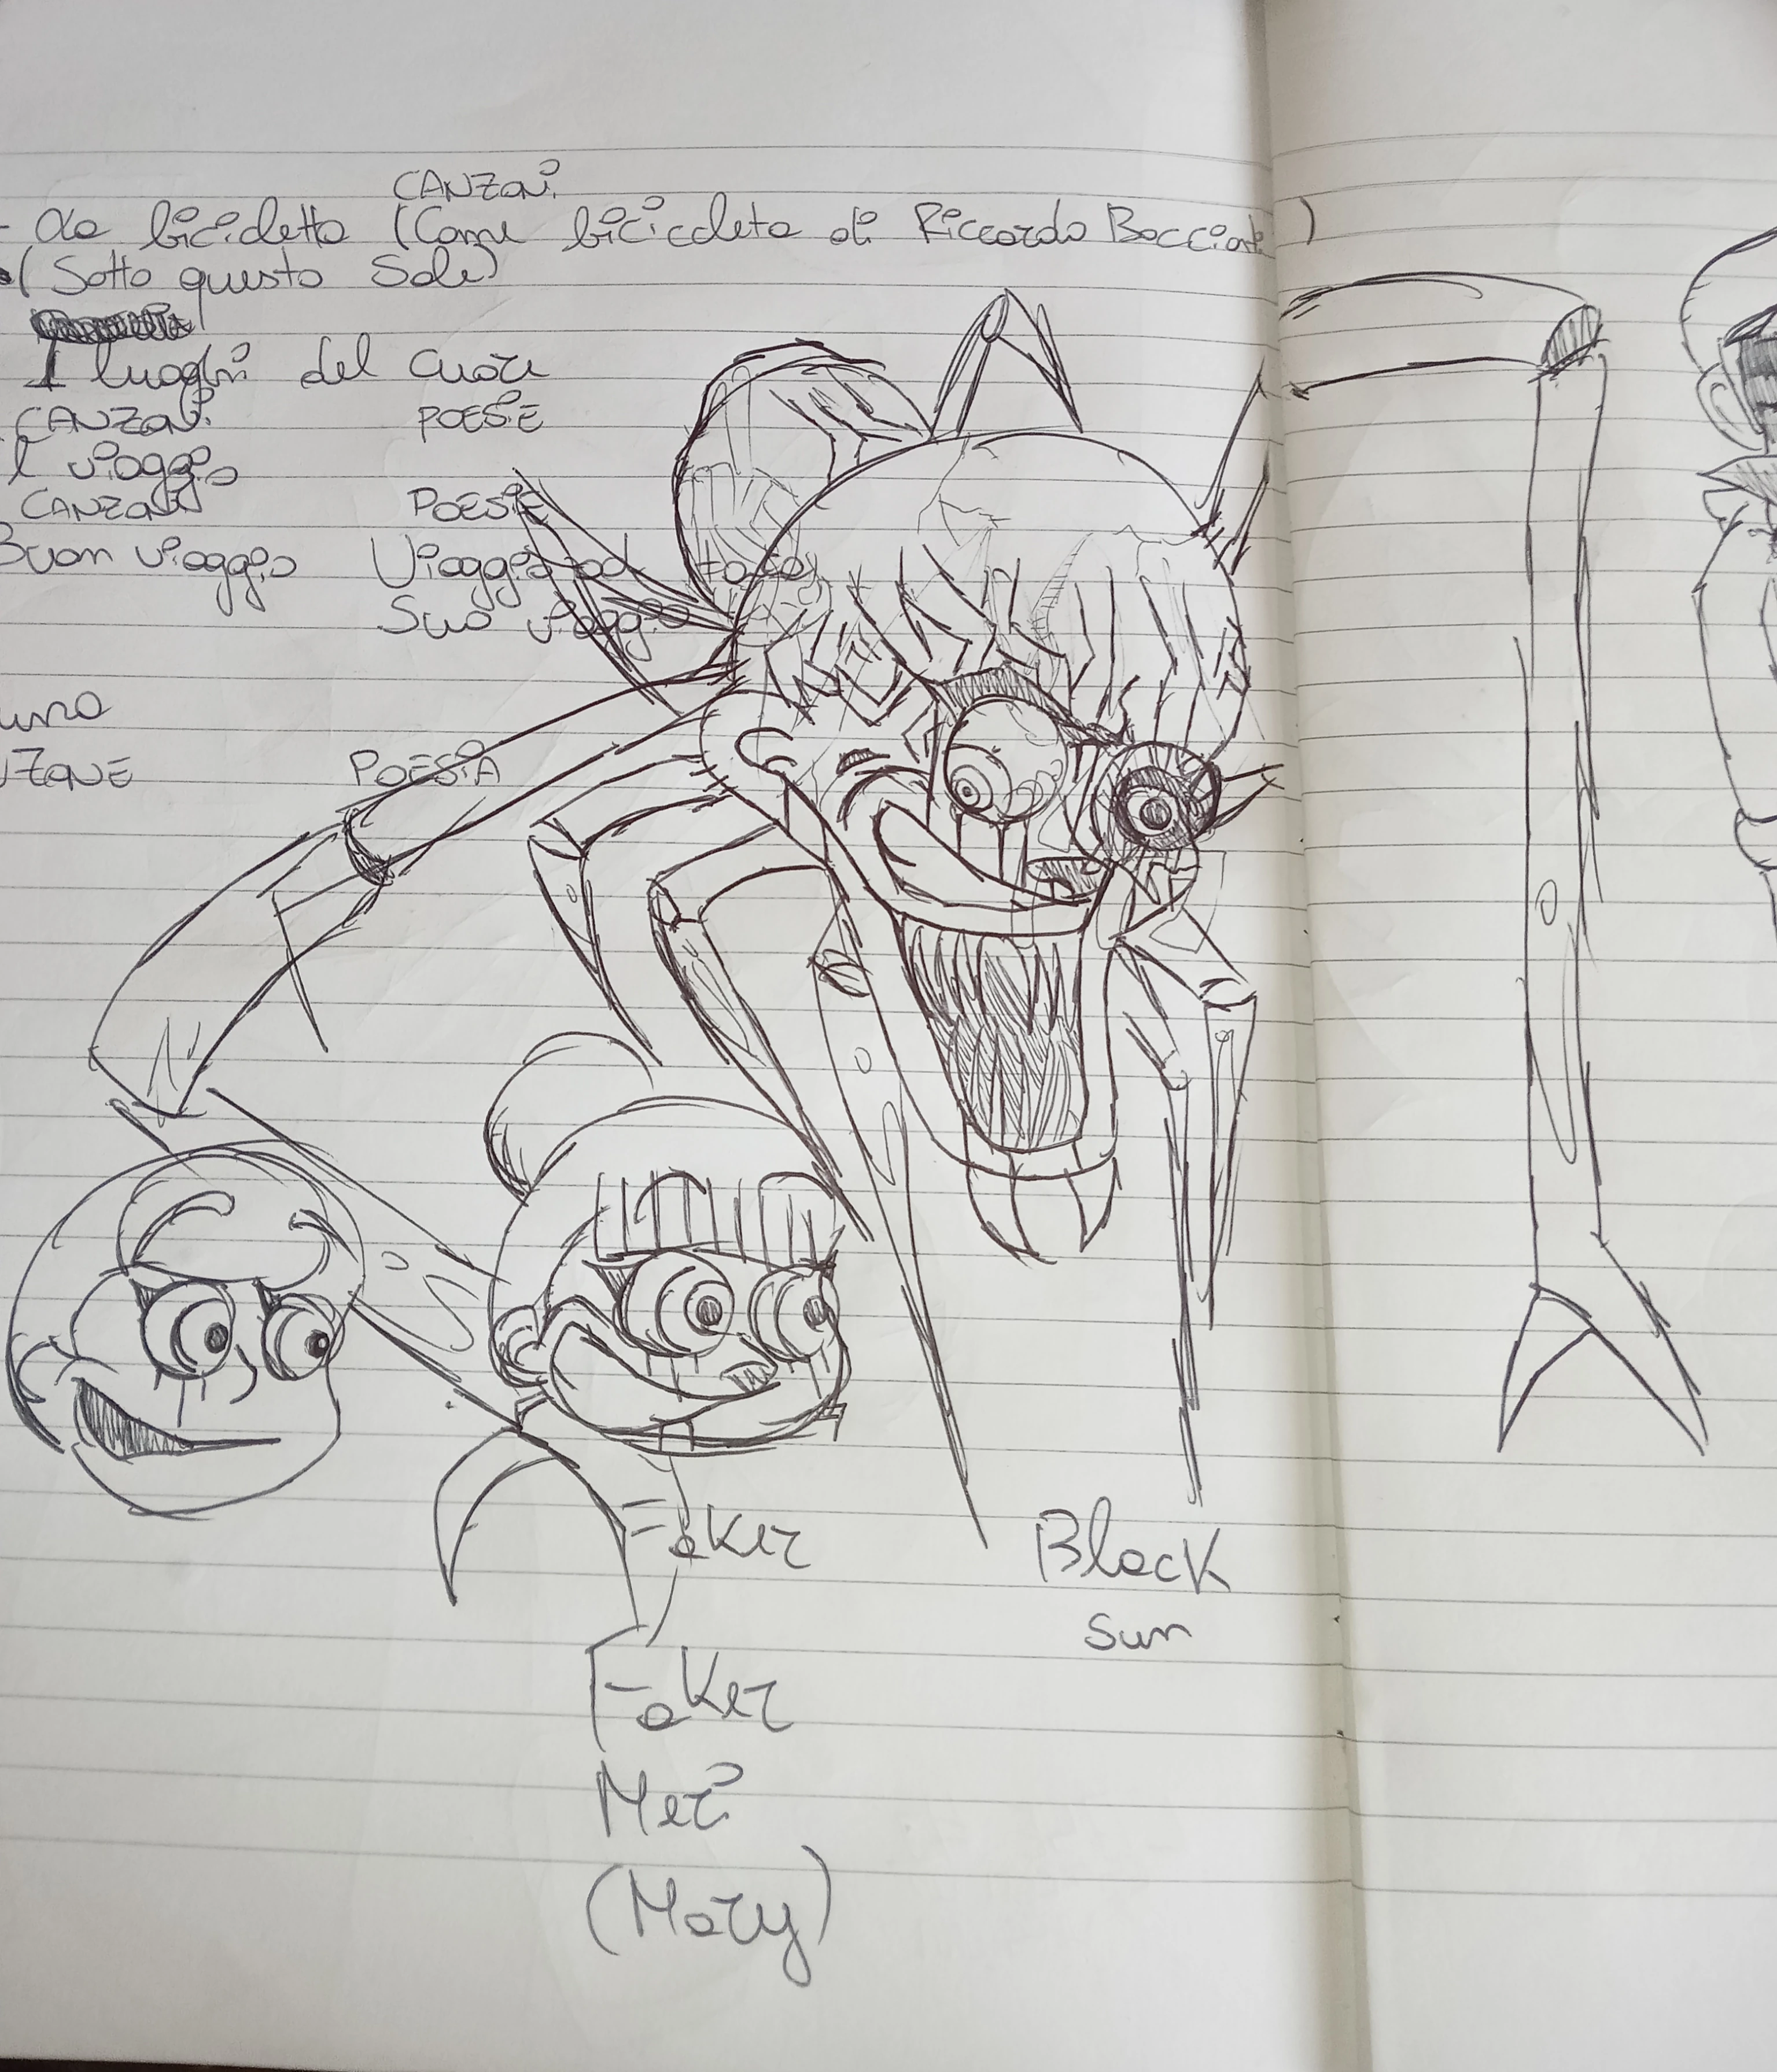 CANZONi
- La bicicletta (Come bicicleta di Riccardo Bocciat )
(Sotto questo Sole)
I luoghi del cuore
CANZONi POESiE
l viaggio
CANZONi POESiE
Buon viaggio Viaggio ad
Suo viaggio
uno
NZONE POESiA
Faker
Black
Sun
Faker
Meri
(Mary)